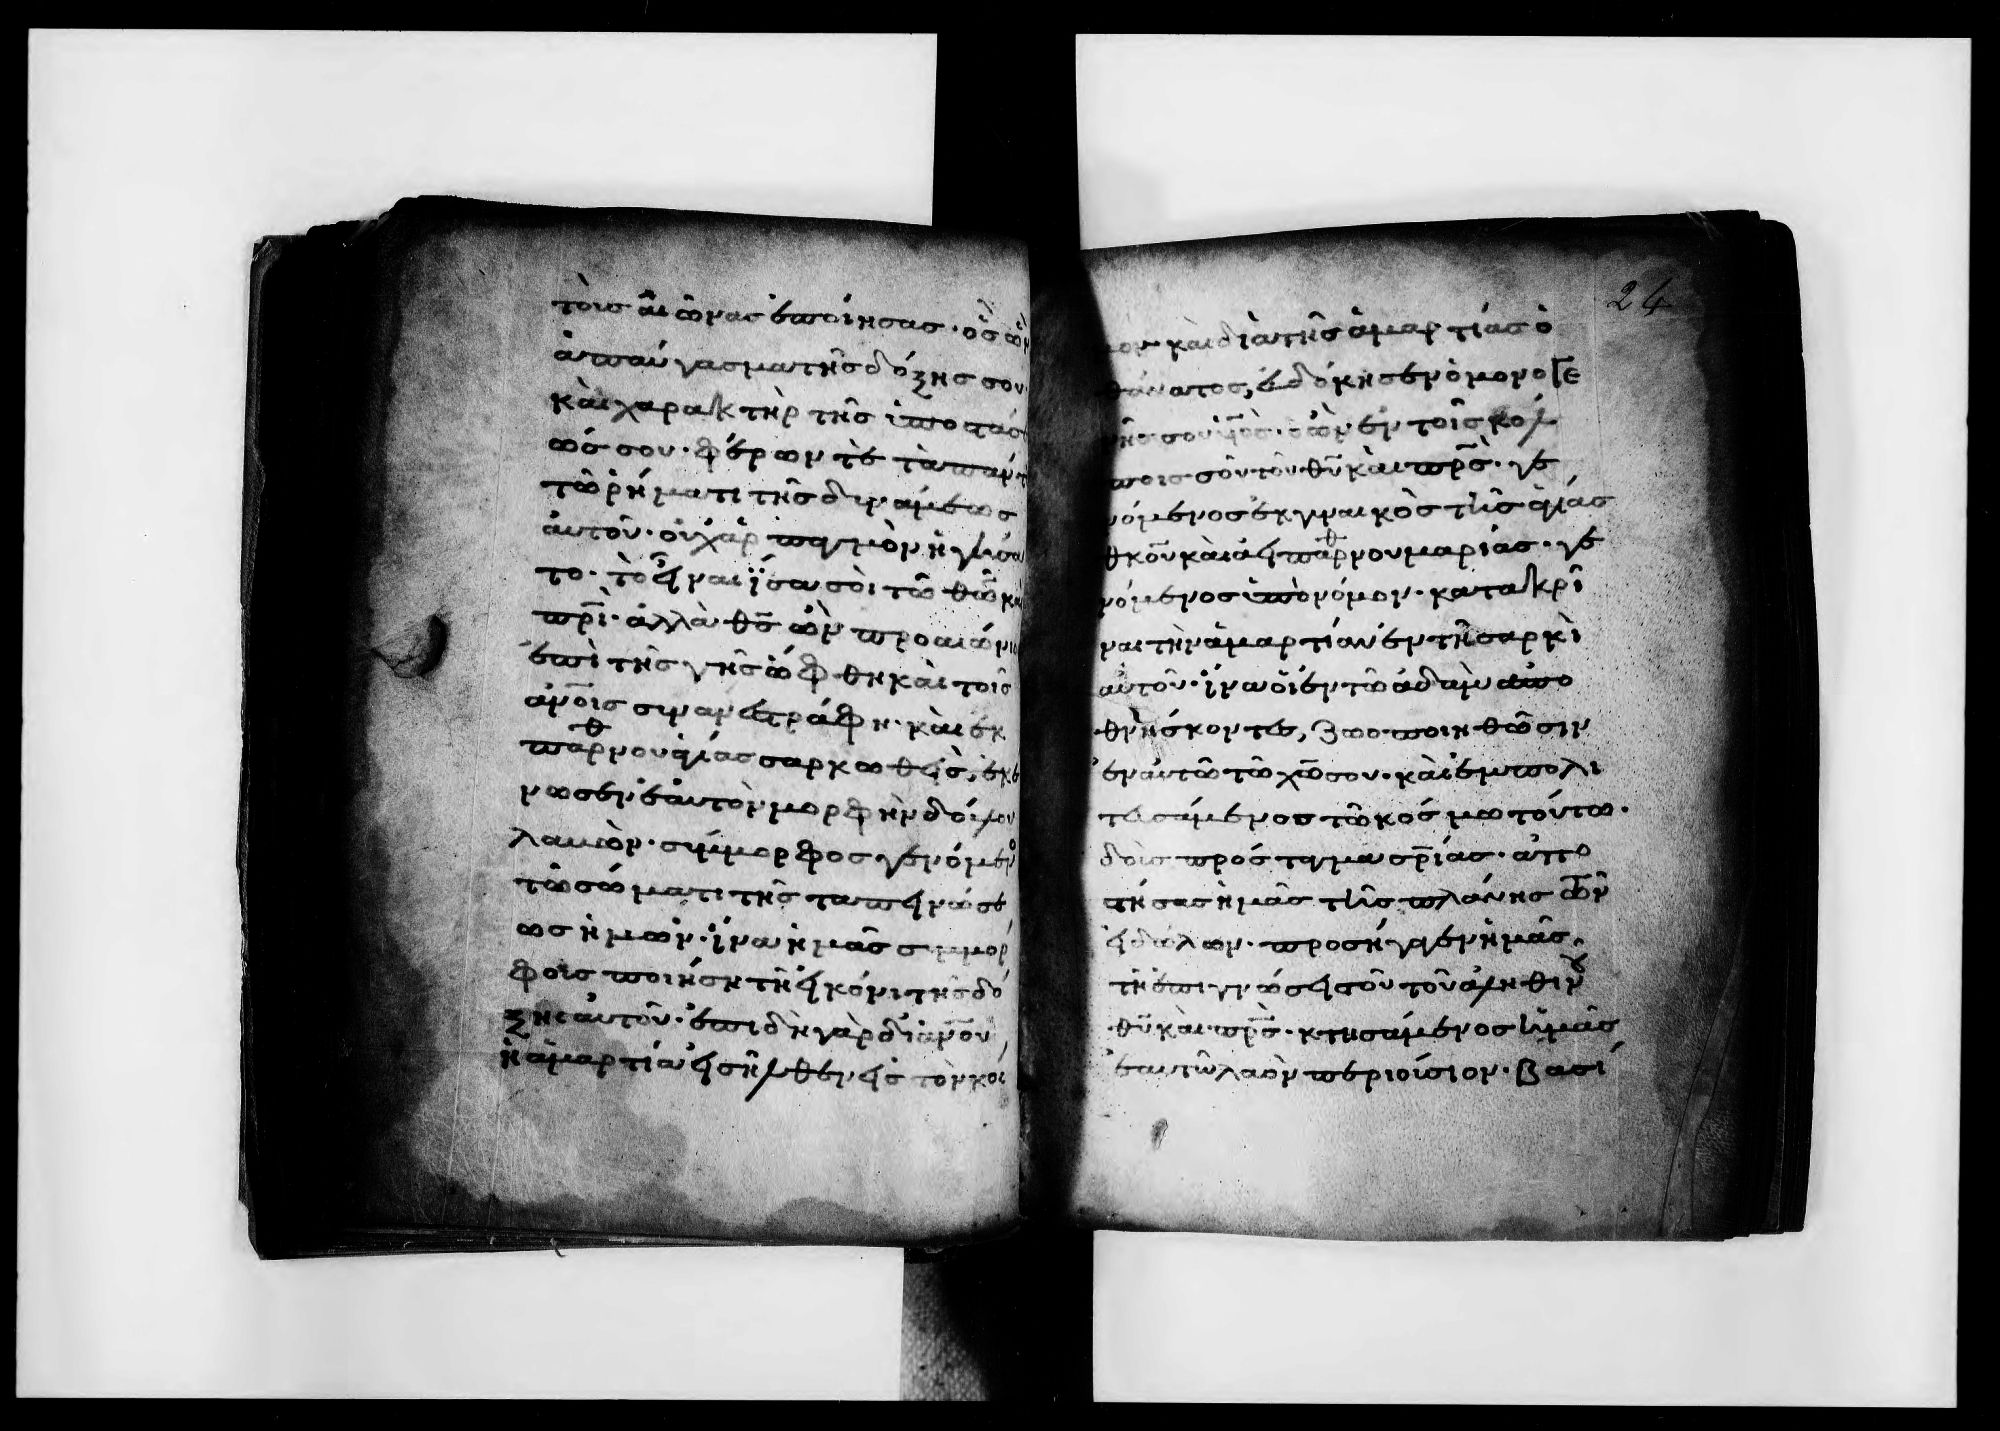 τοὺς αἰῶνας ἐποίησας· ὃς ὢν
ἀπαύγασμα τῆς δόξης σου·
καὶ χαρακτὴρ τῆς ὑποστάσ
εώς σου· φέρων τὲ τὰ πάντ
τῶ ῥήματι τῆς δυνάμεως
αὐτοῦ· οὐχ ἁρπαγμὸν ἡγήσα
το· τὸ εἶναι ἴσα σοὶ τῶ θω̅ κὶ
πρι̅· ἀλλὰ θς̅ ὢν προαιώνιο
ἐπὶ τῆς γῆς ὤφθη καὶ τοῖς
ἀνο̅ις συνανεστράφη· καὶ ἐκ
παρθνου ἁγίας σαρκωθεὶς, ἐκέ
νωσεν ἑαυτὸν μορφὴν δούλου
λαβὼν· σύμμορφος γενόμενο
τῶ σώματι τῆς ταπεινώσε
ως ἡμῶν· ἵνα ἡμᾶς συμμόρ
φους ποιήση τῆ εἰκόνι τῆς δό
ξης αὐτοῦ· ἐπιδὴ γὰρ δι' ἀνο̅υ
ἡ ἁμαρτία εἰσῆλθεν εἰς τὸν κόσ
24
μον· καὶ διὰ τῆς ἁμαρτίας ὁ
θάνατος, ἐδόκησεν ὁ μονογε
νῆς σου υι̅ὸς· ὁ ὢν ἐν τοῖς κόλ
ποις σοῦ τοῦ θυ̅ καὶ πρς̅· γε
νόμενος ἐκ γυναικὸς τῆς ἁγίας
θκου̅ καὶ ἀειπαρθνου μαρίας· γε
νόμενος ὑπὸ νόμον· κατακρῖ
ναι τὴν ἁμαρτίαν ἐν τῆ σαρκὶ
αὐτοῦ· ἵνα οἱ ἐν τῶ ἀδὰμ ἀπο
θνήσκοντες, ζωοποιηθῶσιν
ἐν αὐτῶ τῶ χω̅ σου· καὶ ἐμπολι
τευσάμενος τῶ κόσμω τούτω·
δοὺς πρόσταγμα σρ̅ίας· ἀπο
στήσας ἡμᾶς τῆς πλάνης τῶν
εἰδώλων· προσήγαγεν ἡμᾶς
τῆ ἐπιγνώσει σοῦ τοῦ ἀληθινοῦ
θυ̅ καὶ πρς̅· κτησάμενος ἡμᾶς
ἑαυτῶ λαὸν περιούσιον· βασί